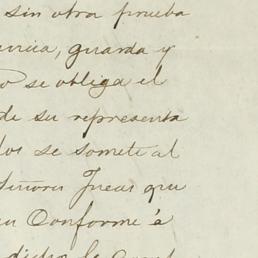 sin otra prueba
guarda y
se obliga el
de su representa
los se somete al
Señores Jueces que
Conforme é